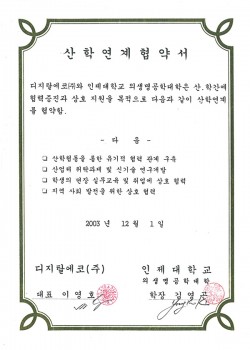 산학연계협약서
디지탈에코(주)와 인제대학교 의생명공학대학은 산.학간에
협력증진과 상호 지원을 목적으로 다음과 같이 산학연계
를 협약함.
- 다 음 -
□ 산학협동을 통한 유기적 협력 관계 구축
□ 산업체 위탁과제 및 신기술 연구개발
□ 학생의 현장 실무교육 및 취업에 상호 협력
□ 지역 사회 발전을 위한 상호 협력
2003 년 12 월 1 일
디지탈에코(주) 인제대학교
의생명공학대학
대표 이영호 학장 김영곤